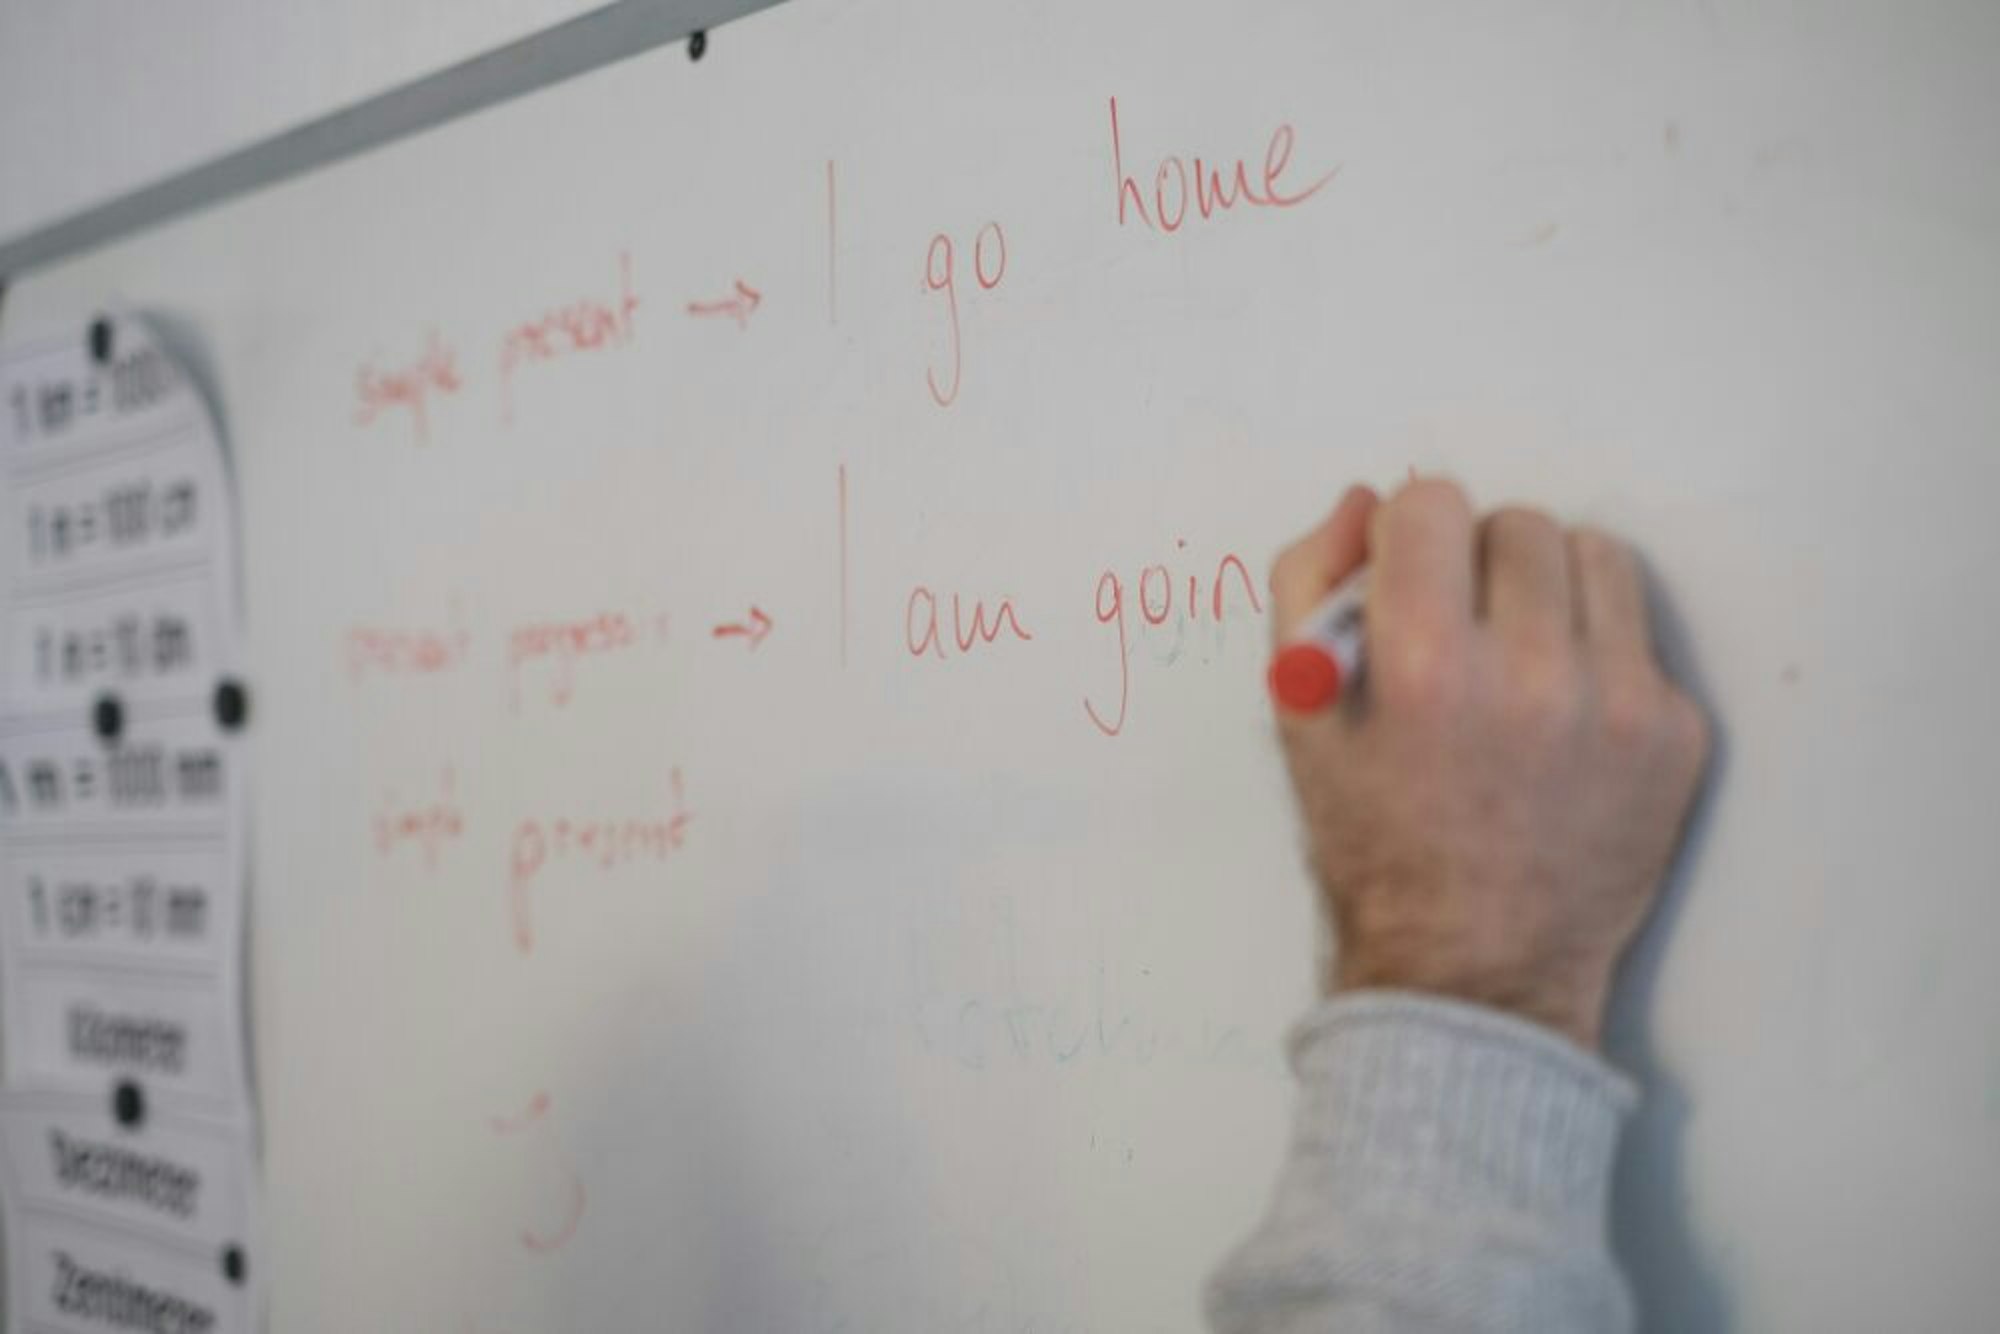 simple present → I go home
present progressiv → I am goin
simple present
1 m = 100 cm
1 m = 10 dm
1 m = 1000 mm
1 cm = 10 mm
Kilometer
Dezimeter
Zentimeter